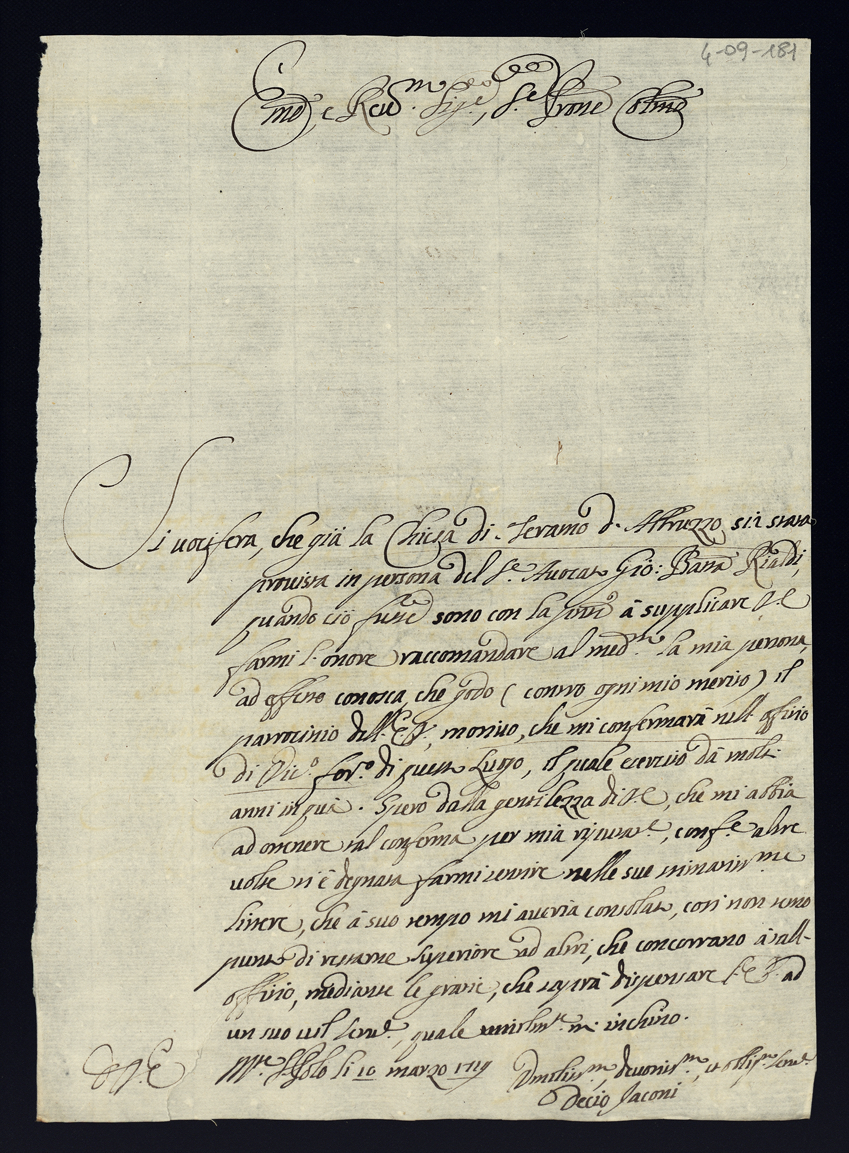 4-09-181
Em̃o, e Reud.m Sig.re, S.re Prone Colmo
Si vocifera, che già la Chiesa di Teramo d'Abruzzo sij stata
provista in persona del S.r Avocato Gio: Batta Rinaldi,
quando ciò fusse sono con la p̃nte à supplicare V.E
farmi l'onore raccomandare al med.mo la mia persona,
ad effetto conosca, che godo (contro ogni mio merito) il
patrocinio dell'E.V., motivo, che mi confermarà nell'offitio
di Vic.o for.o di questo Luogo, il quale esercito da molti
anni in quà. Spero dalla gentilezza di V.E, che mi abbia
ad ottenere tal conferma per mia riputat.e, conf.e altre
volte si è degnata farmi sentire nelle sue stimatiss.me
littere, che à suo tempo mi averia consolato, così non temo
punto di restarne superiore ad altri, che concorrano à tall'
offitio, mediante le gratie, che saprà dispensare l'E.V. ad
un suo util serv.e, quale umilm.te m'inchino.
D. V. E
M.te S. Polo li 10 marzo 1719
Umiliss.mo, devotis.mo, et oblig.mo serv.e
Decio Iaconi